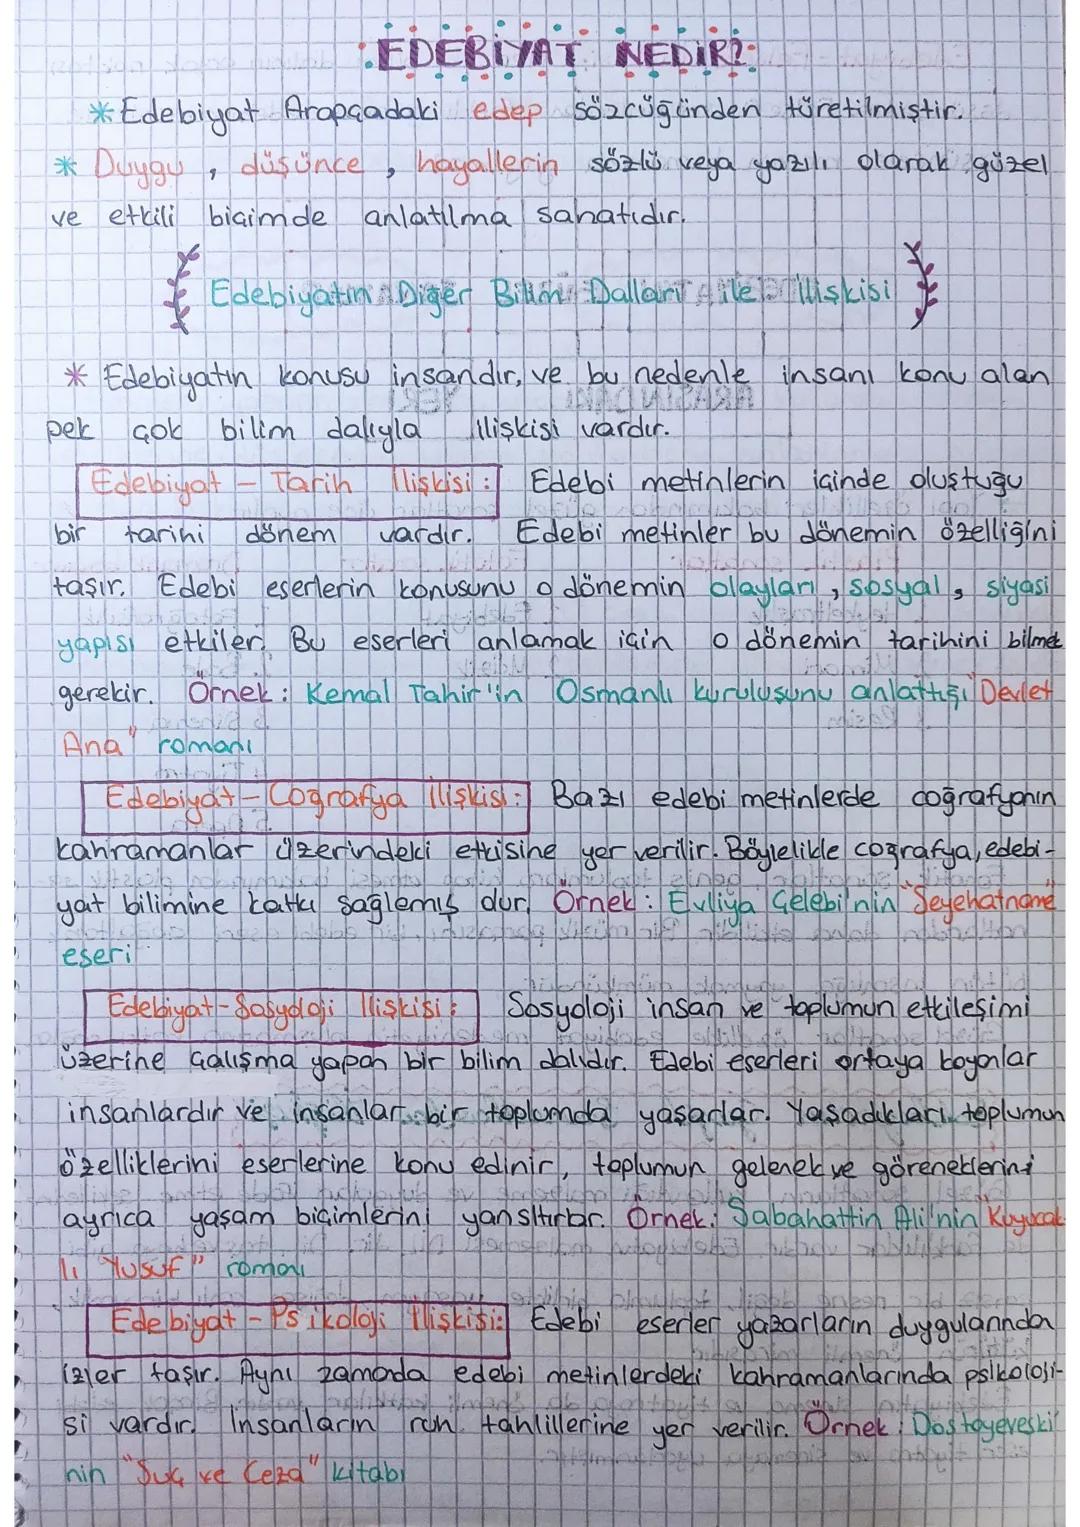 EDEBİYAT NEDİR?
* Edebiyat Arapçadaki edep sözcüğünden türetilmiştir.
* Duygu, düşünce, hayallerin sözlü veya yazılı olarak güzel
ve etkili biçimde anlatılma sanatıdır.
Edebiyatın Diğer Bilim Dalları ile İlişkisi
* Edebiyatın konusu insandır, ve bu nedenle insanı konu alan
pek çok bilim dalıyla ilişkisi vardır.
Edebiyat - Tarih İlişkisi: Edebi metinlerin içinde oluştuğu
bir tarihi dönem vardır. Edebi metinler bu dönemin özelliğini
taşır. Edebi eserlerin konusunu o dönemin olayları, sosyal, siyasi
yapısı etkiler. Bu eserleri anlamak için o dönemin tarihini bilmek
gerekir. Örnek: Kemal Tahir'in Osmanlı kuruluşunu anlattığı "Devlet
Ana" romanı
Edebiyat - Coğrafya İlişkisi: Bazı edebi metinlerde coğrafyanın
kahramanlar üzerindeki etkisine yer verilir. Böylelikle coğrafya, edebi-
yat bilimine katkı sağlemış olur. Örnek: Evliya Çelebi'nin "Seyehatname"
eseri
Edebiyat - Sosyoloji İlişkisi: Sosyoloji insan ve toplumun etkileşimi
üzerine çalışma yapan bir bilim dalıdır. Edebi eserleri ortaya koyanlar
insanlardır ve insanlar bir toplumda yaşarlar. Yaşadıkları toplumun
özelliklerini eserlerine konu edinir, toplumun gelenek ve göreneklerini
ayrıca yaşam biçimlerini yansıtırlar. Örnek: Sabahattin Ali'nin "Kuyucak
lı Yusuf" romanı
Edebiyat - Psikoloji İlişkisi: Edebi eserler yazarların duygularından
izler taşır. Aynı zamanda edebi metinlerdeki kahramanlarında psikoloji-
si vardır. İnsanların ruh tahlillerine yer verilir. Örnek: Dostoyeveski'
nin "Suç ve Ceza" kitabı